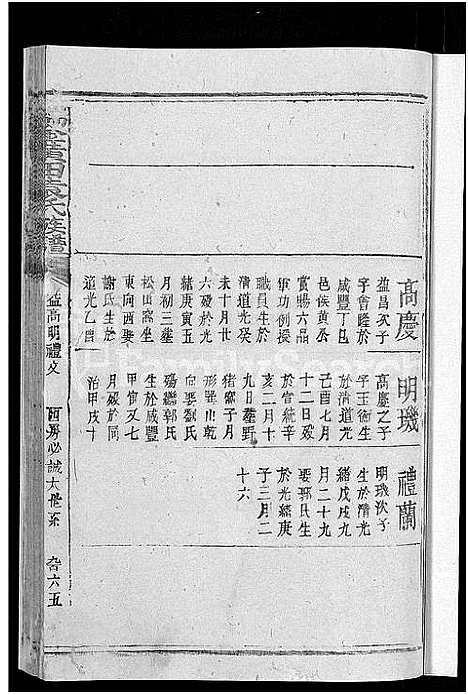 高慶
益昌次子
字會隆於
咸豐丁巳
邑侯黄公
賞賜六品
軍功例授
職員生於
清道光癸
未十月廿
六歿於光
緒庚寅五
月初三塟
松山窩坐
東向西娶
謝氏生於
道光乙酉
明璣
高慶之子
字玉衡生
於清道光
己酉七月
十二日歿
於宣統辛
亥二月十
九日塟野
猪窩子月
形巽山乾
向娶劉氏
殤繼郭氏
生於咸豐
甲寅又七
月歿於同
治甲戌十
禮蘭
明璣次子
生於清光
緒戊戌九
月二十九
娶郭氏生
於光緒庚
子三月二
十六
氏族譜
益高明禮文
必誠大傑系
六五